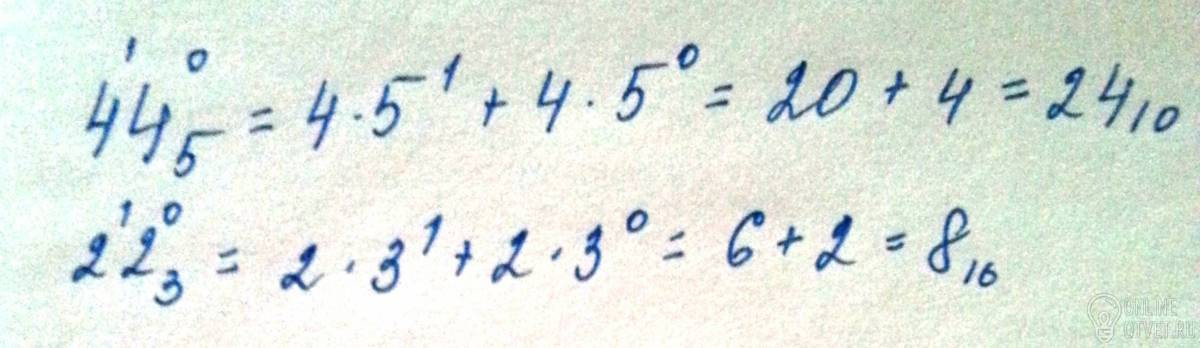 1 0
44₅ = 4·5¹ + 4·5⁰ = 20 + 4 = 24₁₀
1 0
22₃ = 2·3¹ + 2·3⁰ = 6 + 2 = 8₁₀
ONLINE
OTVET.RU